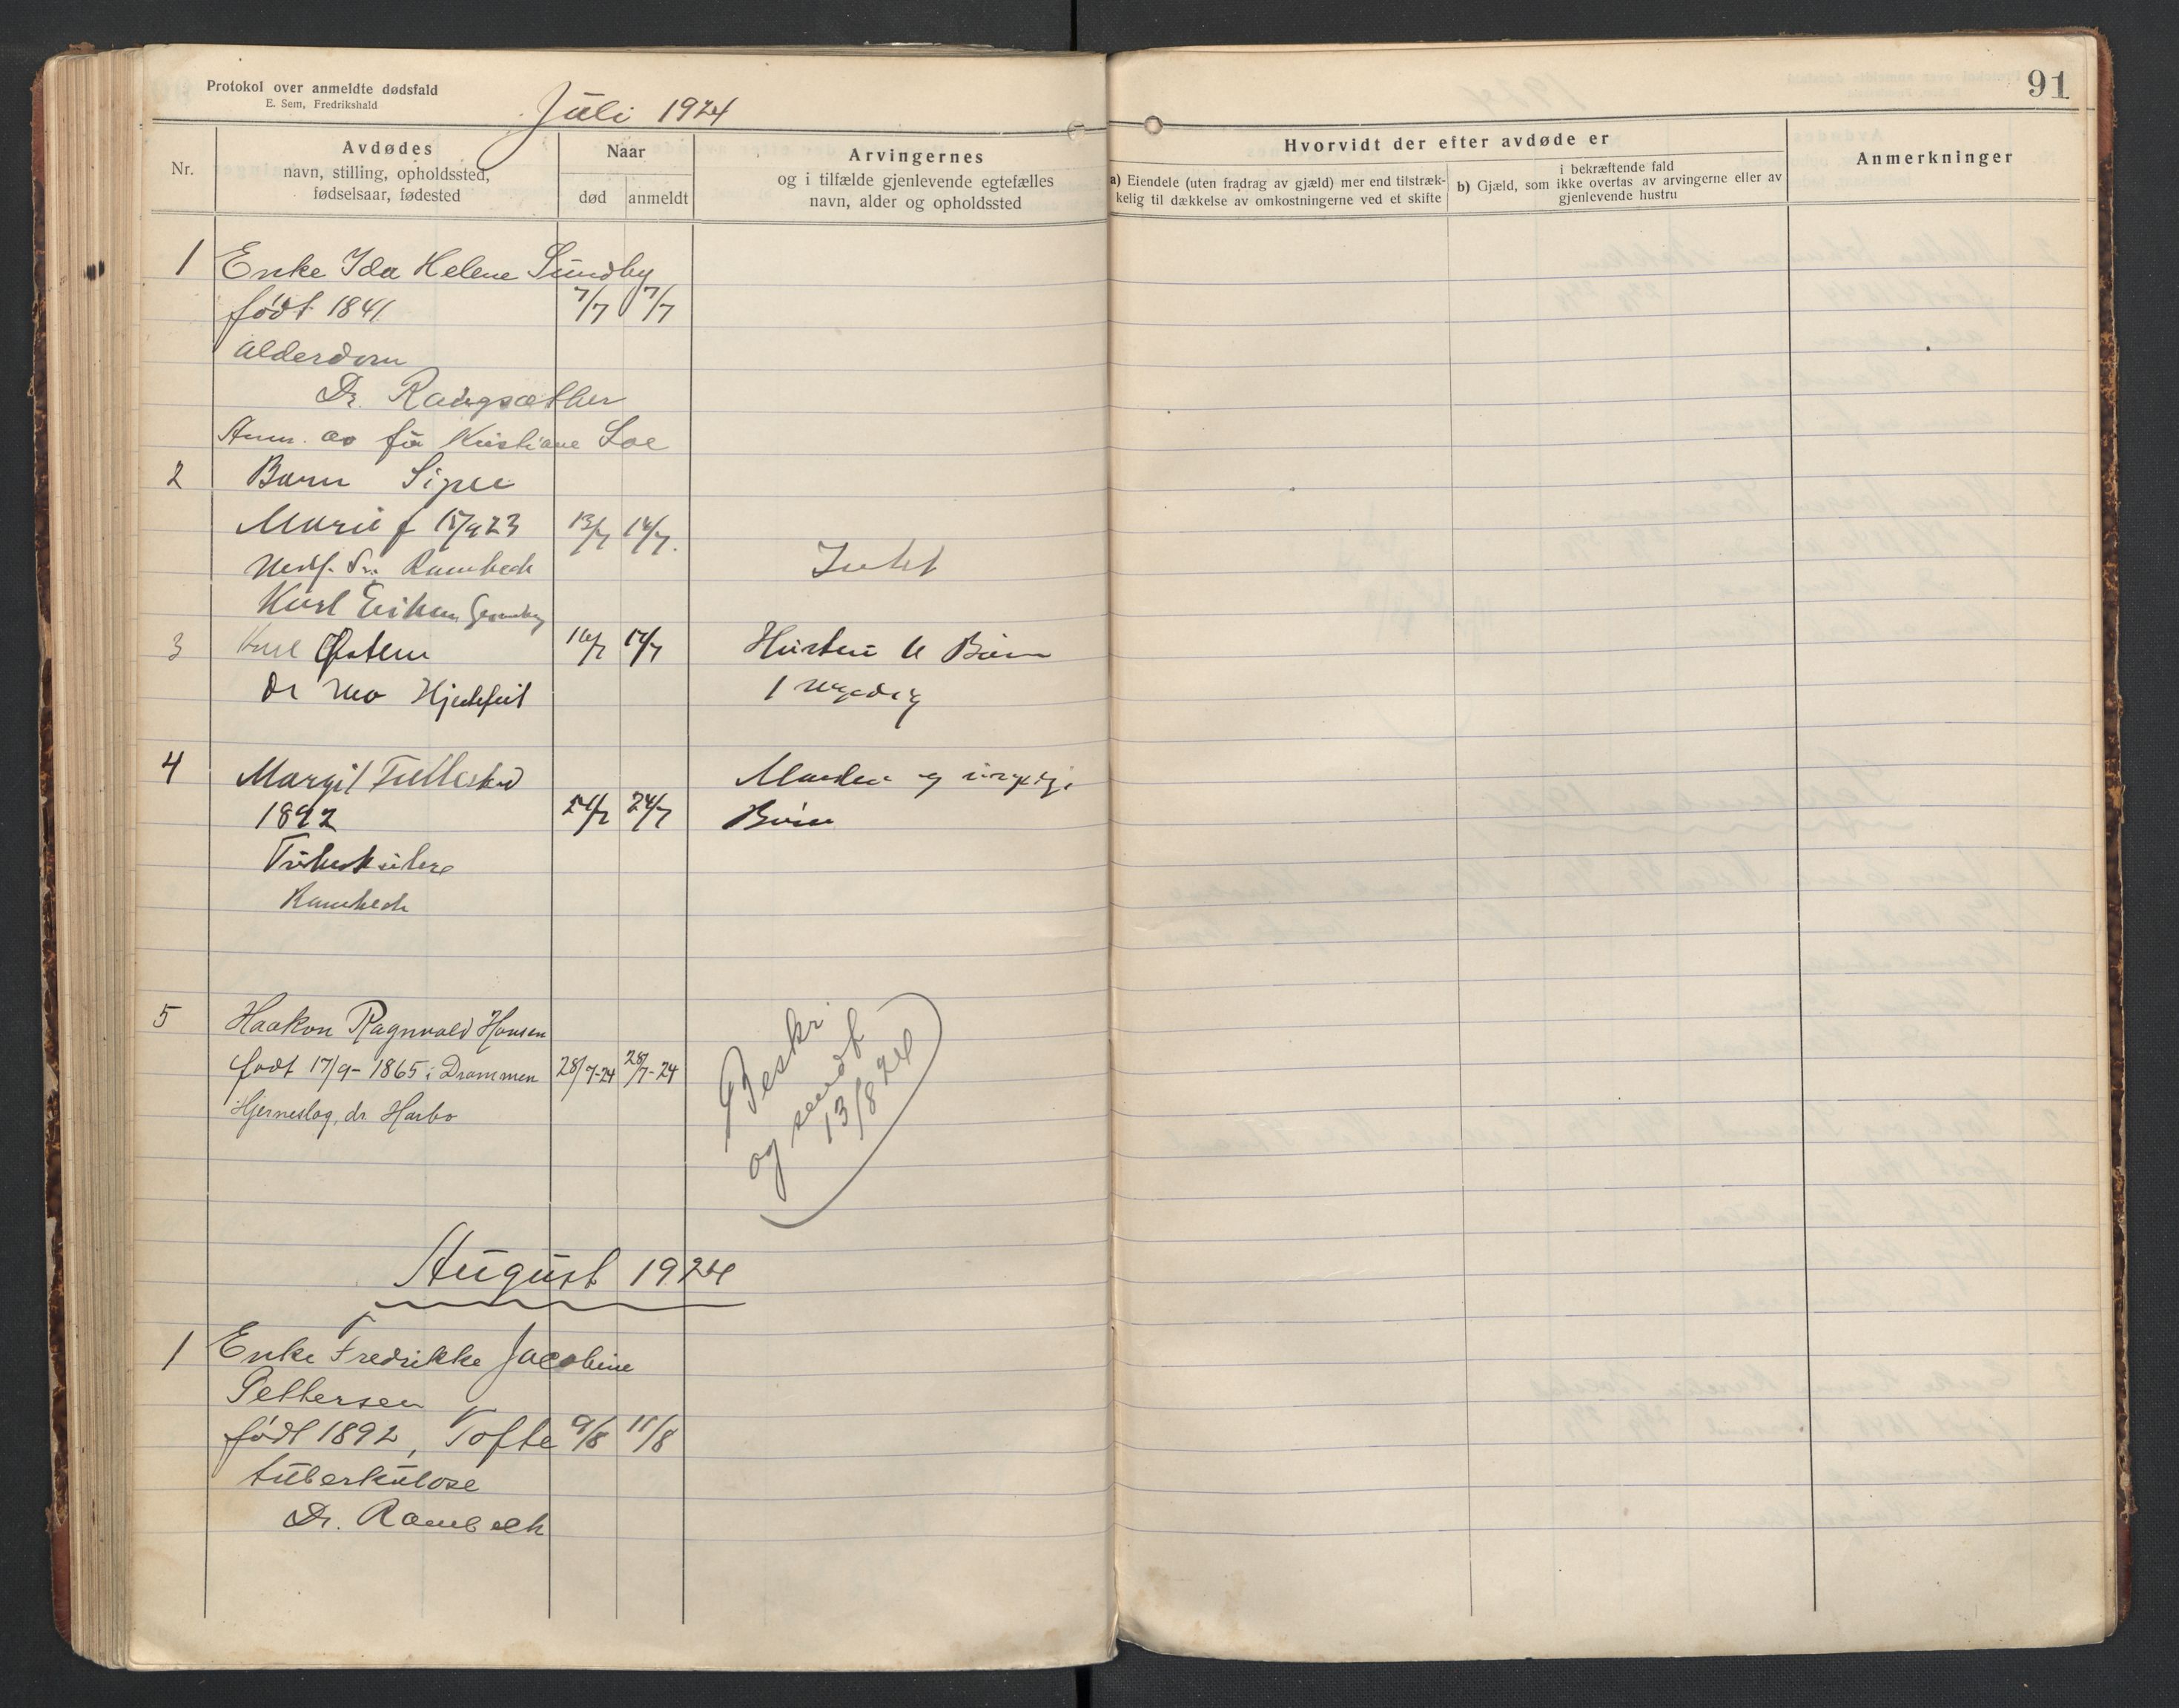 Protokol over anmeldte dødsfald
E. Sem, Fredrikshald
Juli 1924
91
Nr.
Avdødes
navn, stilling, opholdssted,
fødselsaar, fødested
Naar
død
anmeldt
Arvingernes
og i tilfælde gjenlevende egtefælles
navn, alder og opholdssted
Hvorvidt der efter avdøde er
a) Eiendele (uten fradrag av gjæld) mer end tilstræk-
kelig til dækkelse av omkostningerne ved et skifte
i bekræftende fald
b) Gjæld, som ikke overtas av arvingerne eller av
gjenlevende hustru
Anmerkninger
1 Enke Ida Helene Sundby
født 1841 7/7 7/7
Alderdom
Dr. Raugsæther
Anm. av fru Kristiane Loe
2 Barn
Marie f 15/9 23 13/7 14/7.
Dr. Rambech Intet
Karl
3 16/7 17/7 Hustru Børn
Dr Mo Hjertefeil 1
4 Margit Manden og
1892 24/7 24/7 Børn
Tuberkulose
Rambech
5 Haakon Ragnvald Hansen
født 17/9 - 1865 i Drammen 28/7-24 28/7-24
Hjerneslag, dr. Harbo
Beskr.
og sendt
13/8 24
August 1924
1 Enke Fredrikke Jacobine
Pettersen
født 1892, Tofte 9/8 11/8
tuberkulose
Dr. Rambech